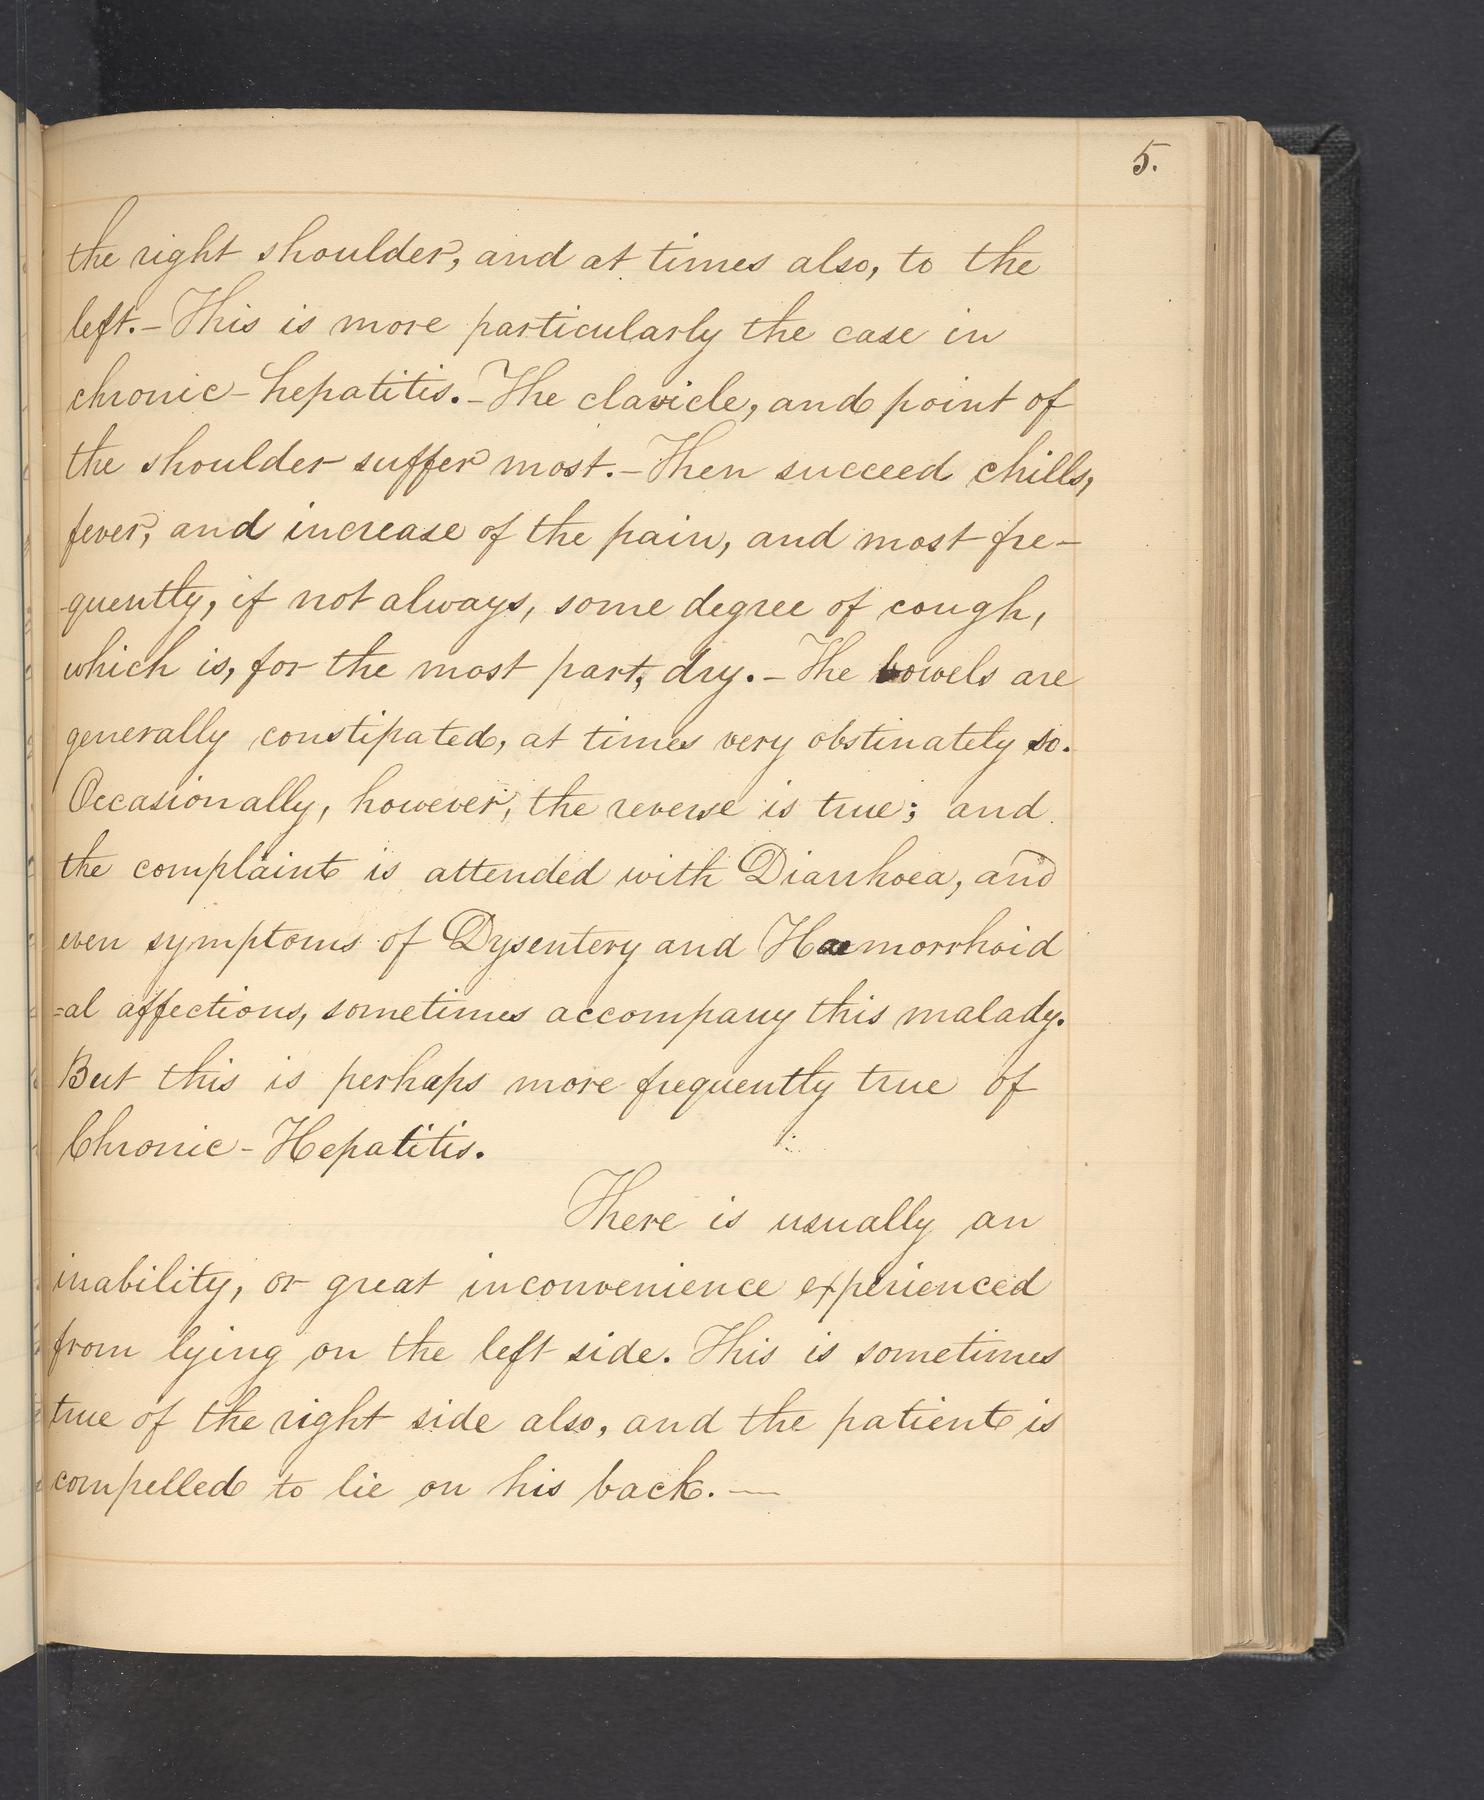 5.
the right shoulder, and at times also, to the
left.- This is more particularly the case in
chronic-hepatitis.- The clavicle, and point of
the shoulder suffer most.- Then succeed chills,
fever, and increase of the pain, and most fre-
quently, if not always, some degree of cough,
which is, for the most part, dry.- The bowels are
generally constipated, at times very obstinately so.
Occasionally, however, the reverse is true; and
the complaint is attended with Diarrhoea, and
even symptoms of Dysentery and Haemorrhoid
=al affections, sometimes accompany this malady.
But this is perhaps more frequently true of
Chronic-Hepatitis.
There is usually an
inability, or great inconvenience experienced
from lying on the left side. This is sometimes
true of the right side also, and the patient is
compelled to lie on his back. —